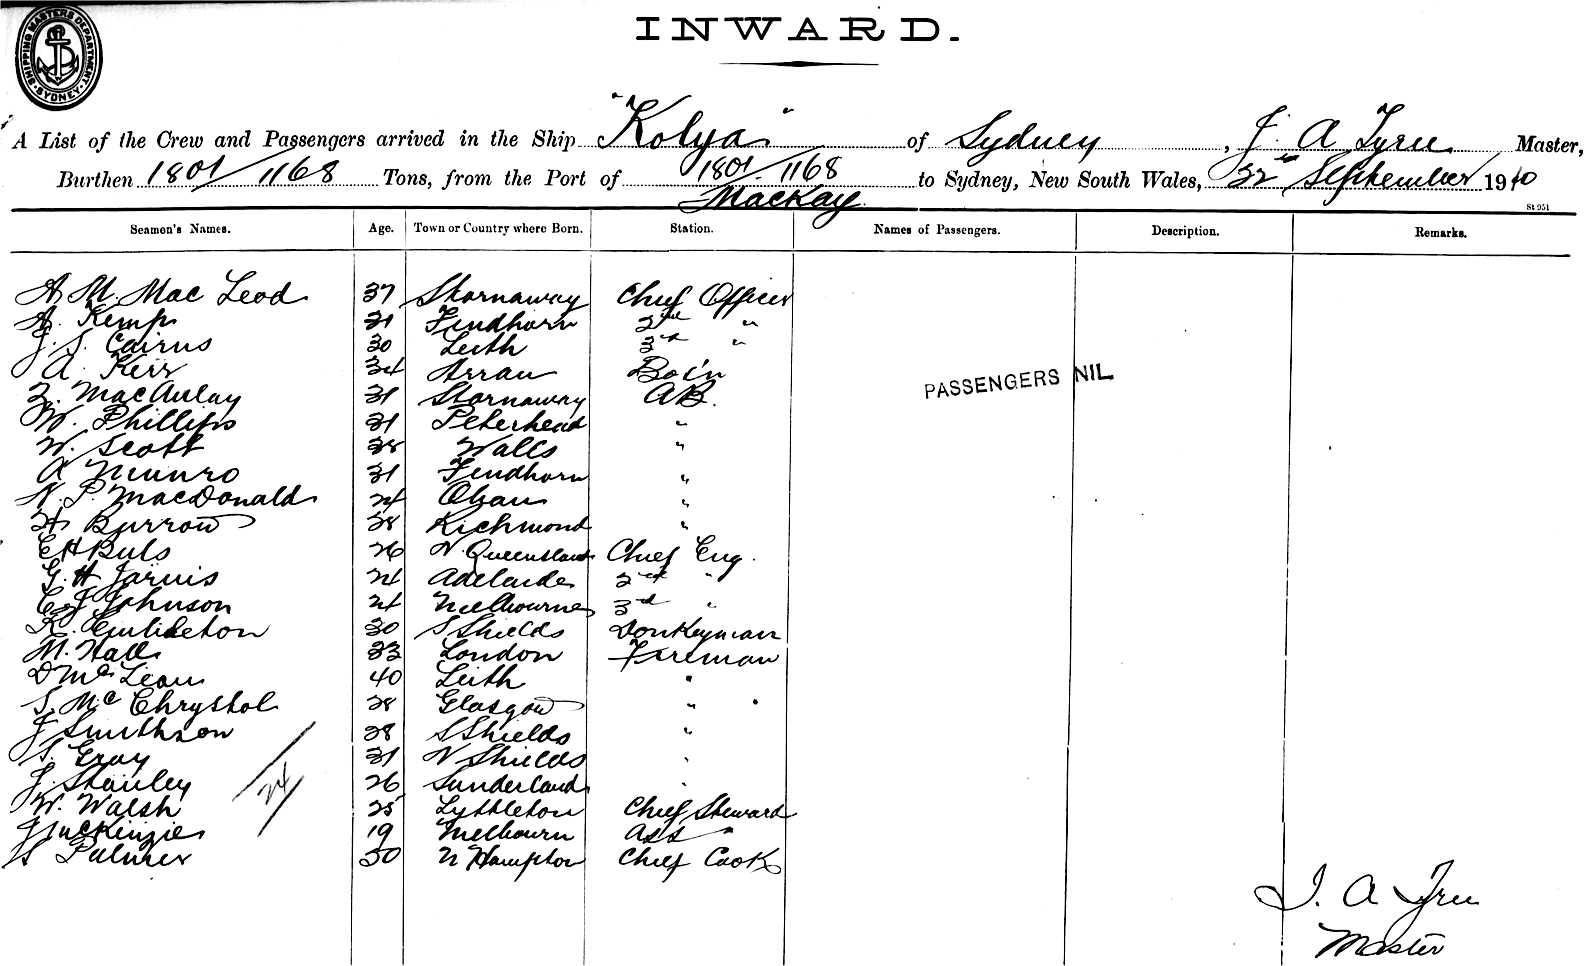 SHIPPING MASTERS DEPARTMENT SYDNEY
INWARD.
A List of the Crew and Passengers arrived in the Ship "Kolya" of Sydney, J. A Tyrer Master,
Burthen 1801/1168 Tons, from the Port of 1801/1168 to Sydney, New South Wales, 22nd September 1910
MacKay
St 951
Seamen's Names. Age. Town or Country where Born. Station. Names of Passengers. Description. Remarks.
A. M. Mac Leod 37 Stornaway Chief Officer
A. Kemp 31 Findhorn 2nd "
J. S. Cairns 30 Leith 3rd "
A. Kerr 34 Arran Bo's'n
Z. MacAulay 31 Stornaway AB.
W. Phillips 31 Peterhead "
W. Scott 28 Walls "
A Munro 31 Findhorn "
N. P. MacDonald 24 Oban "
H Burrow 28 Richmond "
E H Buls 26 N. Queensland Chief Eng.
G. H Jarvis 24 Adelaide 2nd "
C. J Johnson 24 Melbourne 3rd "
R. Embleton 30 S Shields Donkeyman
M. Hall 33 London Fireman
D McLean 40 Leith "
S. McChrystol 28 Glasgow "
J Smithson 28 S Shields "
S. Gray 31 N Shields "
J. Stanley 26 Sunderland "
W. Walsh 25 Lyttleton Chief Steward
J MacKenzie 19 Melbourn Ass "
S Palmer 50 N Hampton Chief Cook
PASSENGERS NIL
24
J. A Tyrer
Master